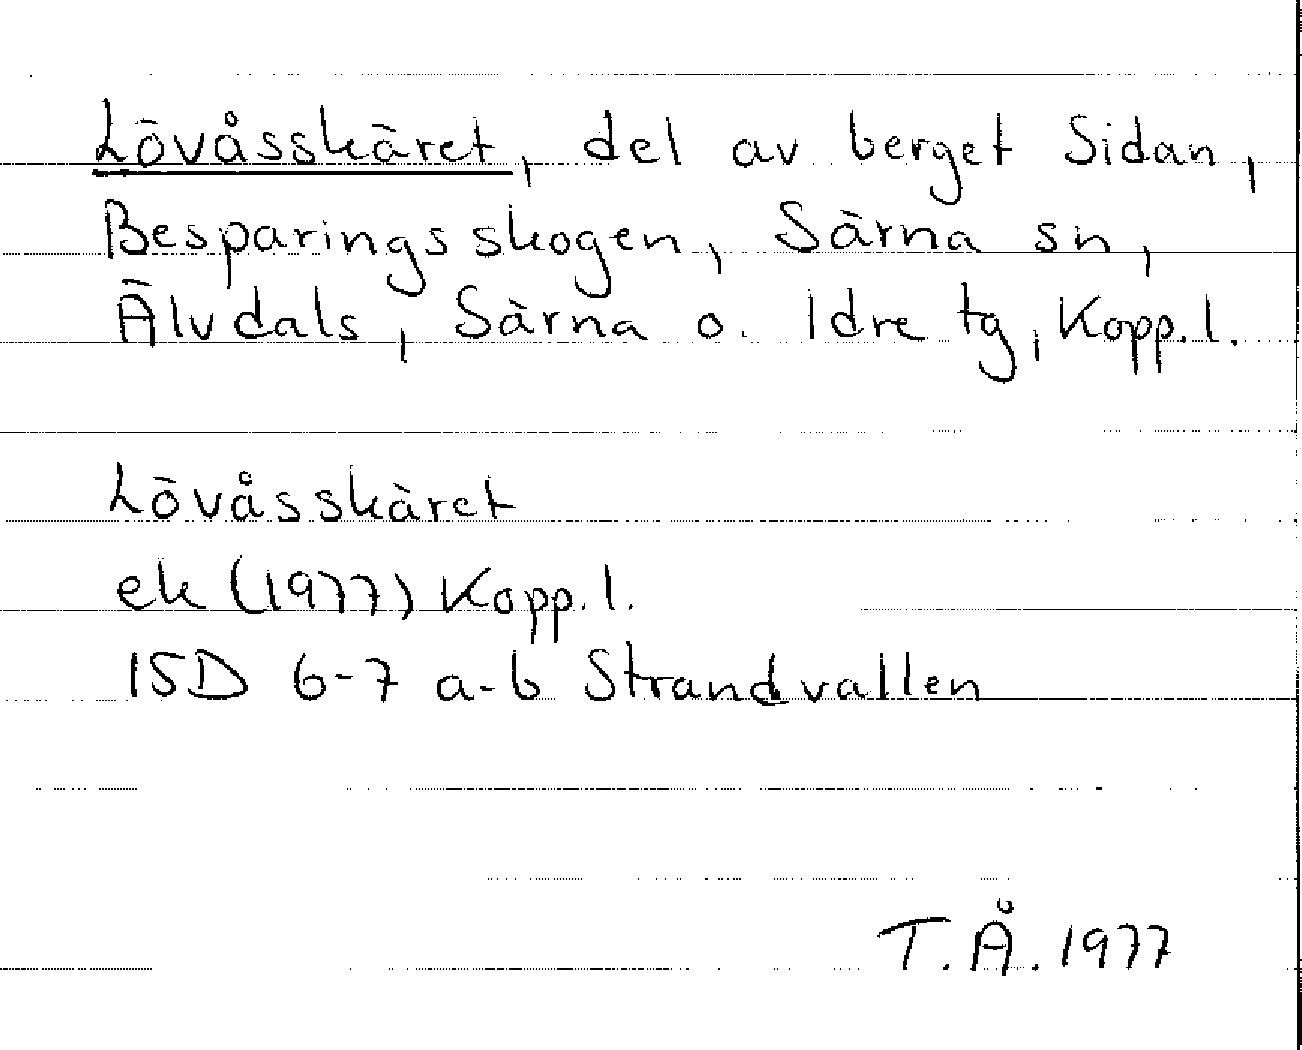 Lövåsskäret, del av berget Sidan,
Besparingsskogen, Särna sn,
Älvdals, Särna o. Idre tg, Kopp.l.
Lövåsskäret
ek (1977) Kopp.l.
15D 6-7 a-b Strandvallen
T.Å. 1977